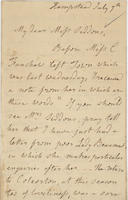 Hampstead July 7th
My dear Miss Siddons,
Before Miss C
Fanshaw left Town which
was last Wednesday, I received
a note from her in which are
these words "If you should
see Mrs. Siddons, pray tell
her that I have just had a
letter from poor Lady Beaumont
in which she makes particular
enquiries after her — The return
to Coleorton, at this season
of loveliness was a sore